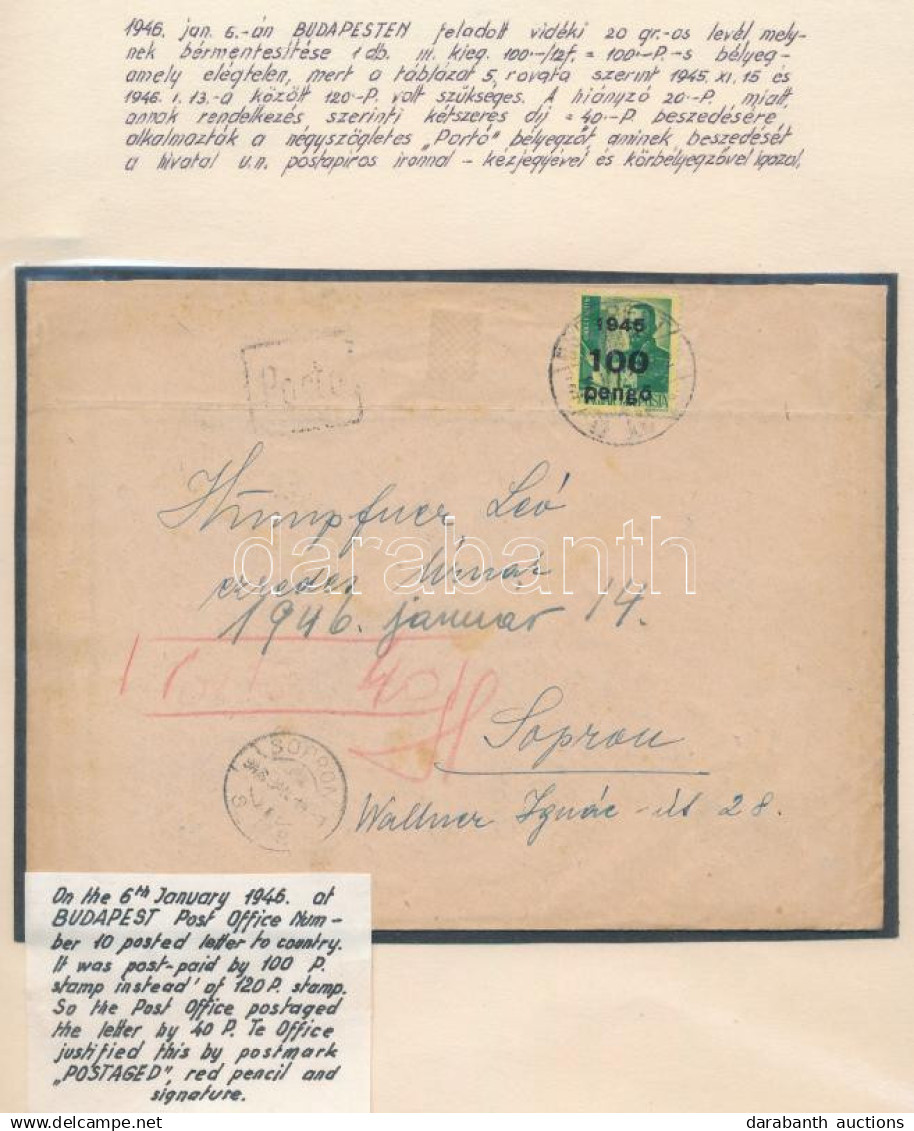 1946. jan. 6.-án BUDAPESTEN feladott vidéki 20 gr.-os levél, mely-
nek bérmentesítése 1 db. III. kieg. 100.-/12f. = 100.-P.-s bélyeg-
amely elégtelen, mert a táblázat 5, rovata szerint 1945. XI. 15 és
1946. I. 13.-a között 120.-P. volt szükséges. A hiányzó 20.-P. miatt,
annak rendelkezés szerinti kétszeres díj = 40.-P. beszedésére
alkalmazták a négyszögletes „Portó" bélyegzőt aminek beszedését
a hivatal u.n. postapiros ironnal - kézjegyével és körbélyegzővel igazol.
1945
100
pengő
Porto
Leó
ezredes Úrnak
1946. január 14.
Porto 40
Sopron
SOPRON
Wallner Ignác-út 28.
darabanth
On the 6th January 1946. at
BUDAPEST Post Office Num-
ber 10 posted letter to country.
It was post-paid by 100 P.
stamp instead' of 120 P. stamp.
So the Post Office postaged
the letter by 40 P. Te Office
justified this by postmark
„POSTAGED", red pencil and
signature.
darabanth auctions